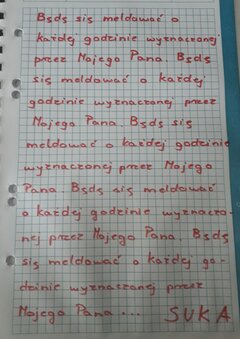 Będę się meldować o
każdej godzinie wyznaczonej
przez Mojego Pana. Będę
się meldować o każdej
godzinie wyznaczonej przez
Mojego Pana. Będę się
meldować o każdej godzinie
wyznaczonej przez Mojego
Pana. Będę się meldować
o każdej godzinie wyznaczo-
nej przez Mojego Pana. Będę
się meldować o każdej go-
dzinie wyznaczonej przez
Mojego Pana... SUKA